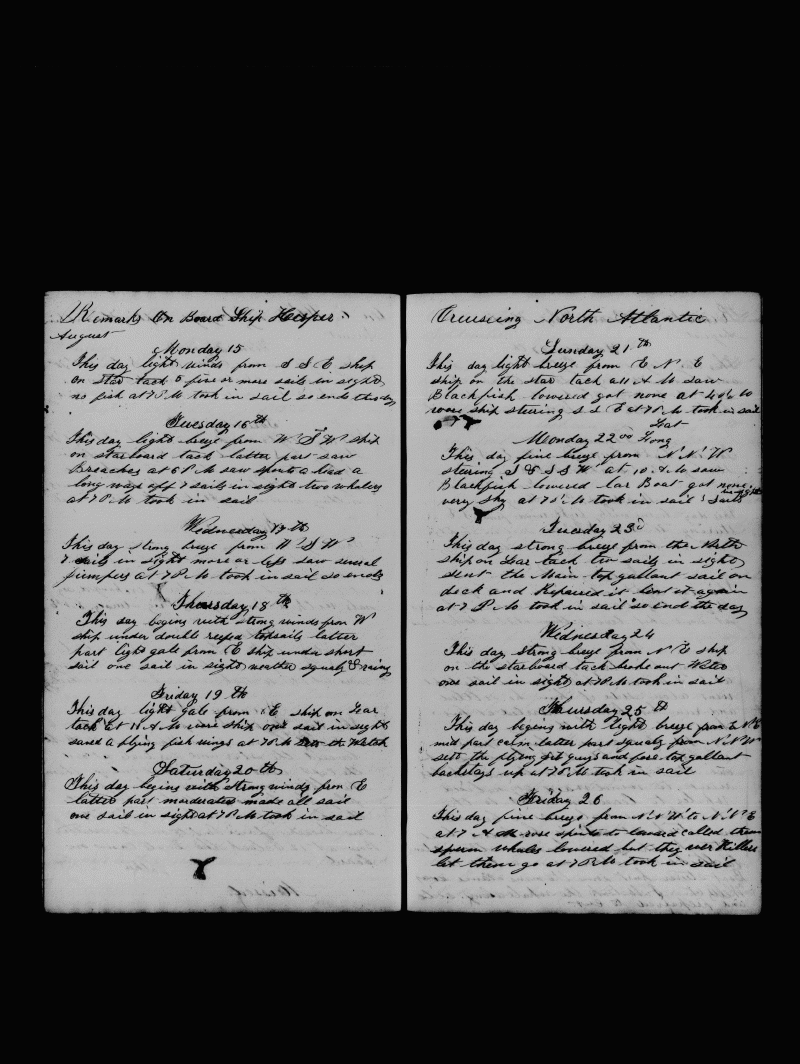 Remarks On Board Ship Hesper
August
Monday 15
This day light winds from S S E ship
on star tack 5 five or more sails in sight
no fish at 7 P M took in sail so ends this day
Tuesday 16th
This day light breze from W S W ship
on starboard tack latter part saw
Breaches at 6 P M saw spouts a had a
long ways off 7 sails in sight two whaleing
at 7 P M took in sail
Wednesday 17th
This day strong breze from W S W
7 sails in sight more or less saw several
jumpers at 7 P M took in sail so ends
Thursday 18th
This day begins with strong winds from W
ship under double reefed topsails latter
part light gale from E ship under short
sail one sail in sight weather squaly & rainy
Friday 19th
This day light gale from E ship on Lar
tack at 11 A M wore ship one sail in sight
saved a flying fish wings at 7 P M the Watch
Saturday 20th
This day begins with strong winds from E
latter part moderated made all sail
one sail in sight at 7 P M took in sail
Cruiseing North Atlantic
Sunday 21th
This day light breze from E N E
ship on the star tack at 11 A M saw
Blackfish lowered got none at 4
wore ship stering S S E at 7 P M took in sail
Lat
Monday 22nd Long
This day fine breze from N N W
stering S & S S W at 10 A M saw
Blackfish lowered Lar Boat got none
in sight
very Shy at 7 P M took in sail 3 Sails
Tuesday 23d
This day strong breze from the North
ship on Lar tack two sails in sight
sent the Main topgallant sail on
deck and Repaired it bent it again
at 7 P M took in sail so end the day
Wednesday 24
This day strong breze from N E ship
on the starboard tack broke out Water
one sail in sight at 7 P M took in sail
Thursday 25th
This day begins with light breze from E N E
mid part calm latter part squaly from N N W
sett the flying jib guys and fore topgallant
backstays up at 7 P M took in sail
Friday 26
This day fine breze from N N W to N N E
at 7 A M rose spouts to leward called them
sperm whales lowered but they wer Killers
let them go at 7 P M took in sail